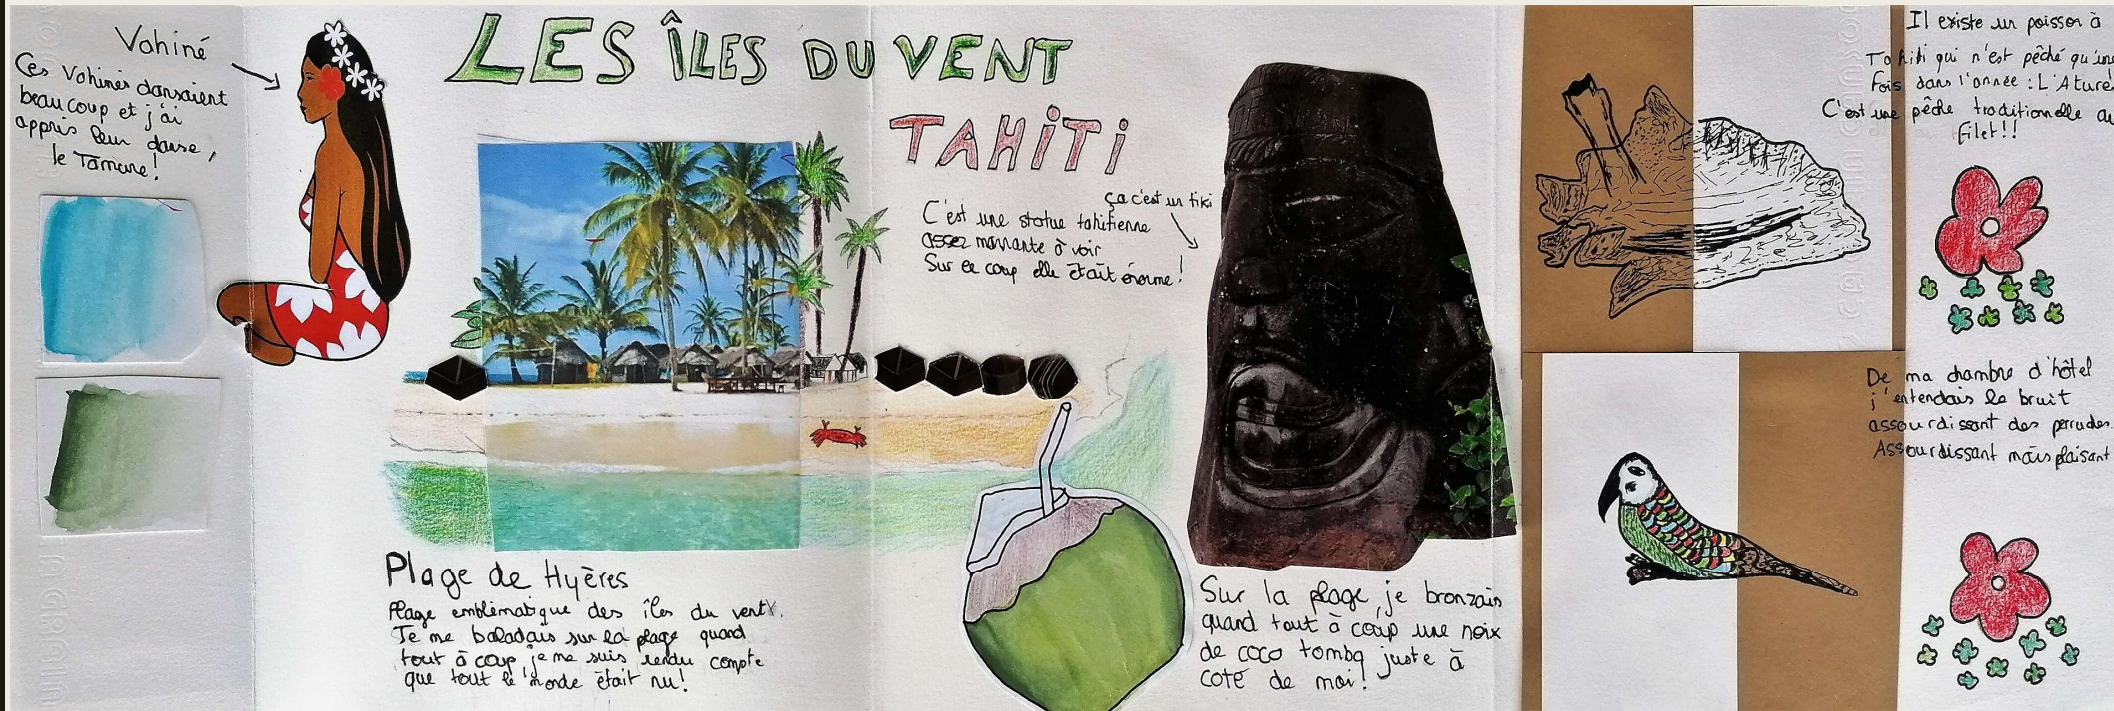 Vahiné
Ces Vahinés dansaient
beaucoup et j'ai
appris leur danse,
le Tamure!
LES ÎLES DU VENT
TAHITI
ça c'est un tiki
C'est une statue tahitienne
assez marrante à voir
Sur ce coup elle était énorme!
Plage de Hyères
Plage emblématique des îles du vent
Je me baladais sur la plage quand
tout à coup, je me suis rendu compte
que tout le monde était nu!
Sur la plage, je bronzais
quand tout à coup une noix
de coco tomba juste à
coté de moi!
Il existe un poisson à
Tahiti qui n'est pêché qu'une
Fois dans l'année : L'Ature
C'est une pêche traditionnelle au
Filet!!
De ma chambre d'hôtel
j'entendais le bruit
assourdissant des perruches.
Assourdissant mais plaisant